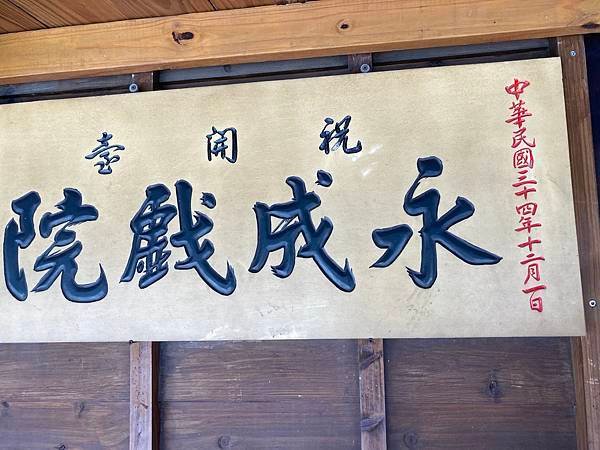 中華民國三十四年十二月一日
祝開臺
永成戲院